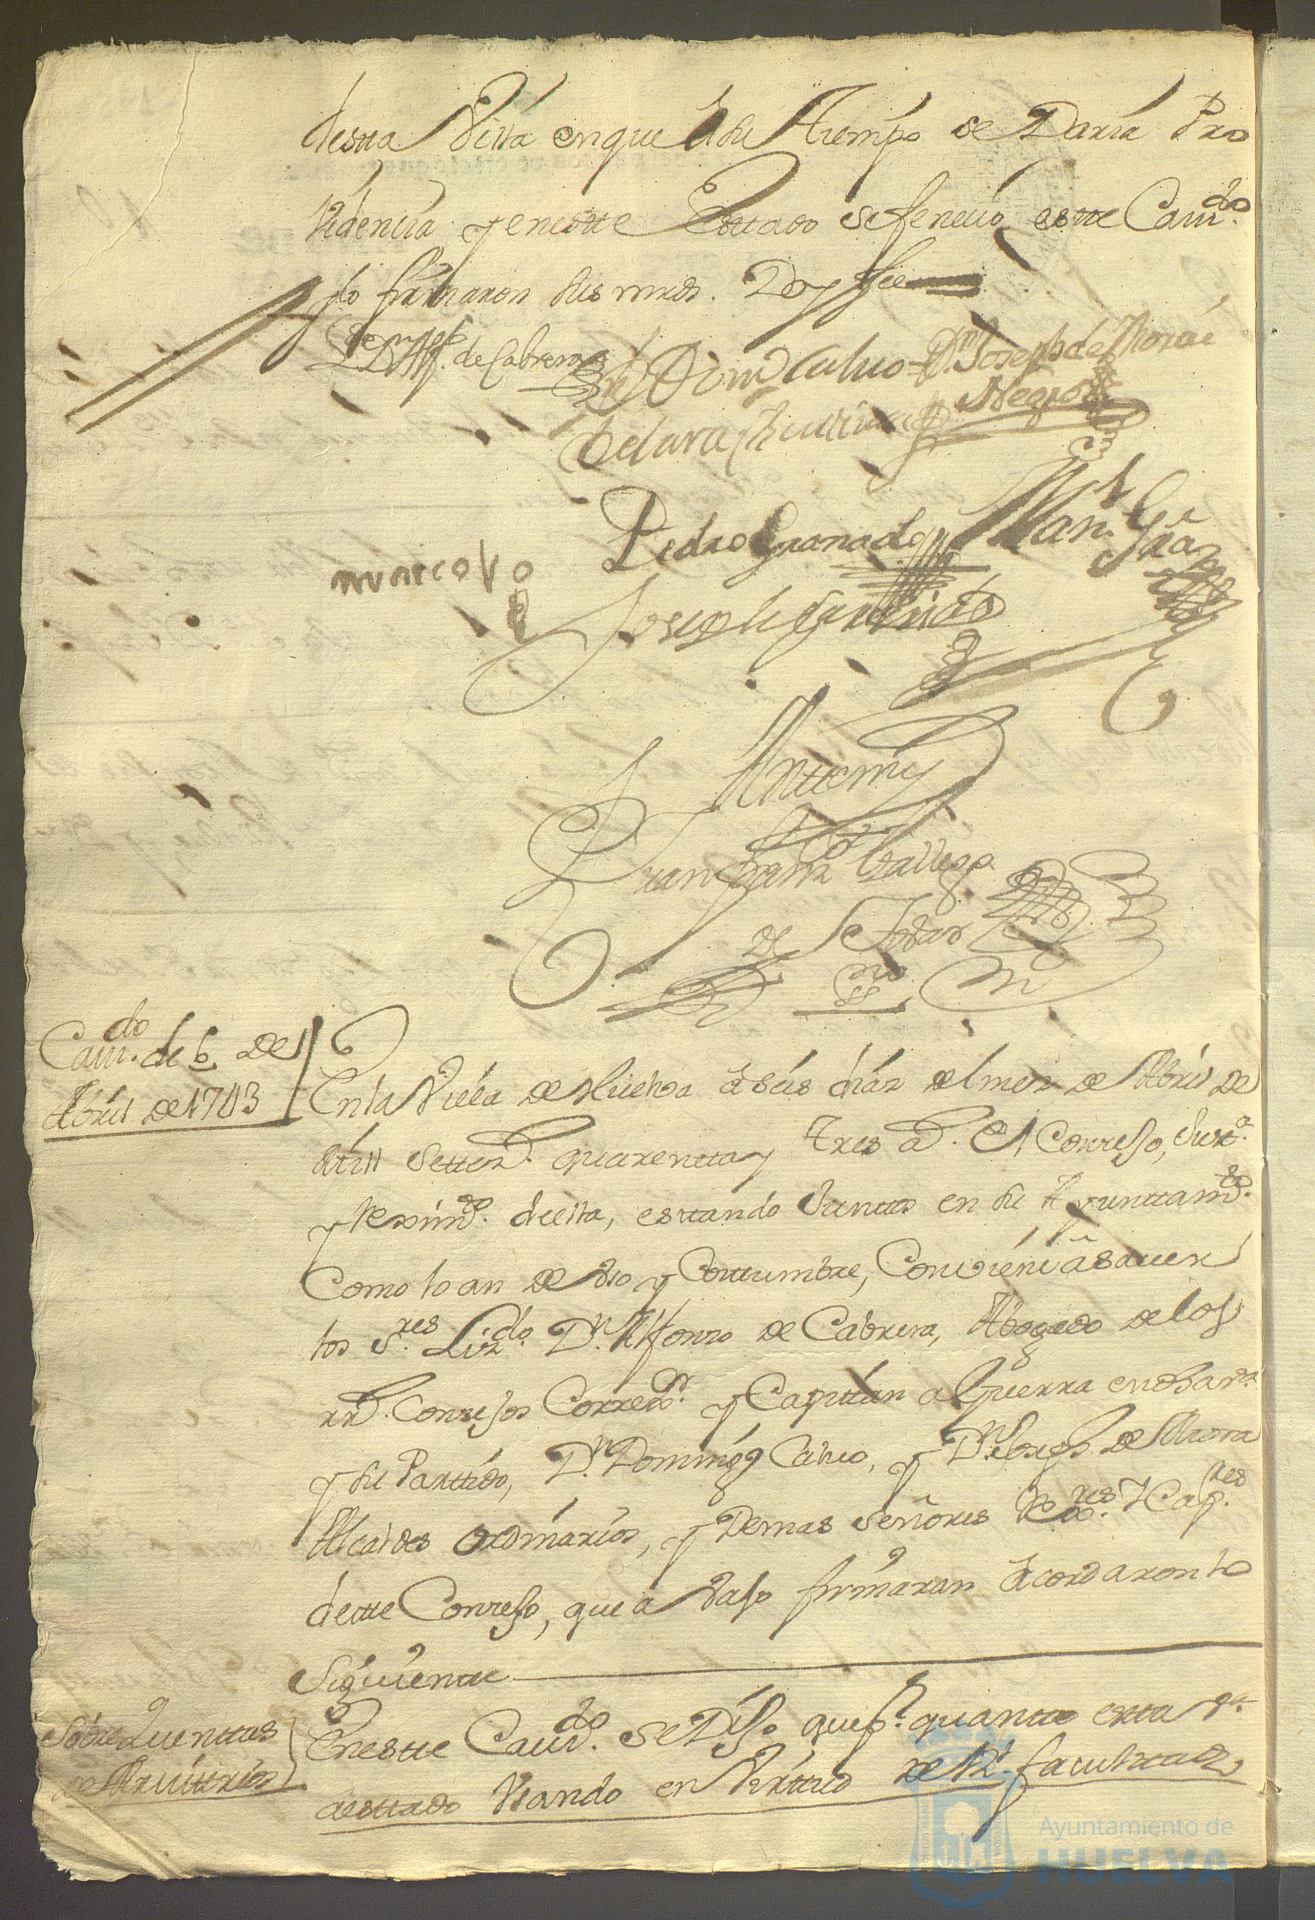 desta Villa en que a su tiempo se Daria Pro
videncia y en este Estado se fenecio este Cavd.º
y lo firmaron sus mrds. Doy fee
Lizdo. Dn. Alf. de Cabrera Dn. Domº Calvo Dn. Joseph de Mora
de Lara Negro
Pedro Granado Man.l Gra
marcos
Joseph Garrido
Antemy
Juan Franz Gallego
de Tobar
Essno
Cavdo. de 6 de
Abril de 1743
En la Villa de Huelva a seis dias del mes de Abril de
mill settez.s quarenta y tres a.s El Conzejo, Just.a
y Reximto. de ella, estando Juntos en su Ayunttamto.
Como lo an de uso y Costumbre, Conviene a saver
los S.res Lizdo. Dn. Alfonso de Cabrera, Abogado de los
rr.s Consejos Corredr. y Capitan a Guerra en esta v.a
y su Parttido, Dn. Domingo Calvo, y Dn. Joseph de Mora
Alcaldes ordinarios, y demas señores Rexres. Y Capres.
deste Consejo, que a vajo firmaran Acordaron lo
Siguiente
Sobre Quenttas
de Arvittrios
En este Cavdo. se Dijo que p.r quanto esta v.a
a esttado Usando en Virttud de Rl. facultad
Ayuntamiento de
HUELVA